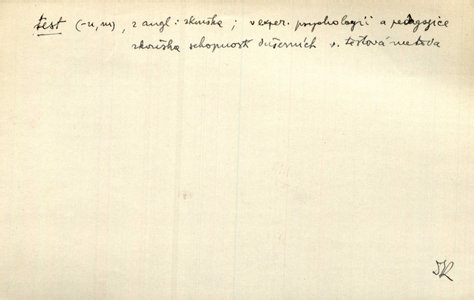 test (-u, m), z angl: zkouška; v exper. psychologii a pedagogice
zkouška schopností duševních v. testová metoda
JK